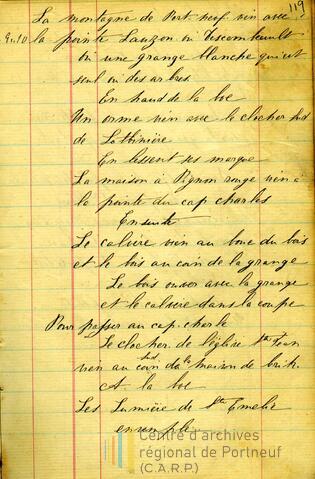 119
La montagne de Port neuf vien avec
la pointe Lauzon ou Descoteault
ou une grange blanche qui est
seul ou des arbres
En haud de la bce
Un orme vien avec le clocher sud
de Lotbinière
En lessent ses marque
La maison à Pignon rouge vien à
la pointe du cap charles
Ensuite
Le calvère vien au boue du bois
et le bois au coin de la grange
Le bois ouvor avec la grange
et le calvère dans la coupe
Pour passer au cap charle
Le clocher de l'église St Jean
vien au coin sud de la maison de brik
et la bce
Les Lumière de Ste Emelie
en
Centre d'archives
régional de Portneuf
(C.A.R.P.)